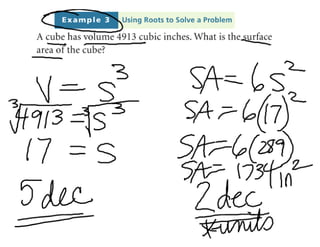 Example 3 Using Roots to Solve a Problem
A cube has volume 4913 cubic inches. What is the surface
area of the cube?
V = s³
∛4913 = ∛s³
17 = s
5 dec
SA = 6s²
SA = 6(17)²
SA = 6(289)
SA = 1734 in²
2 dec
*units